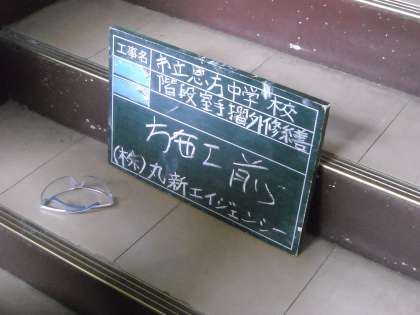 工事名 市立恩方中学校
階段室手摺外修繕
施工前
(株)丸新エイジェンシー